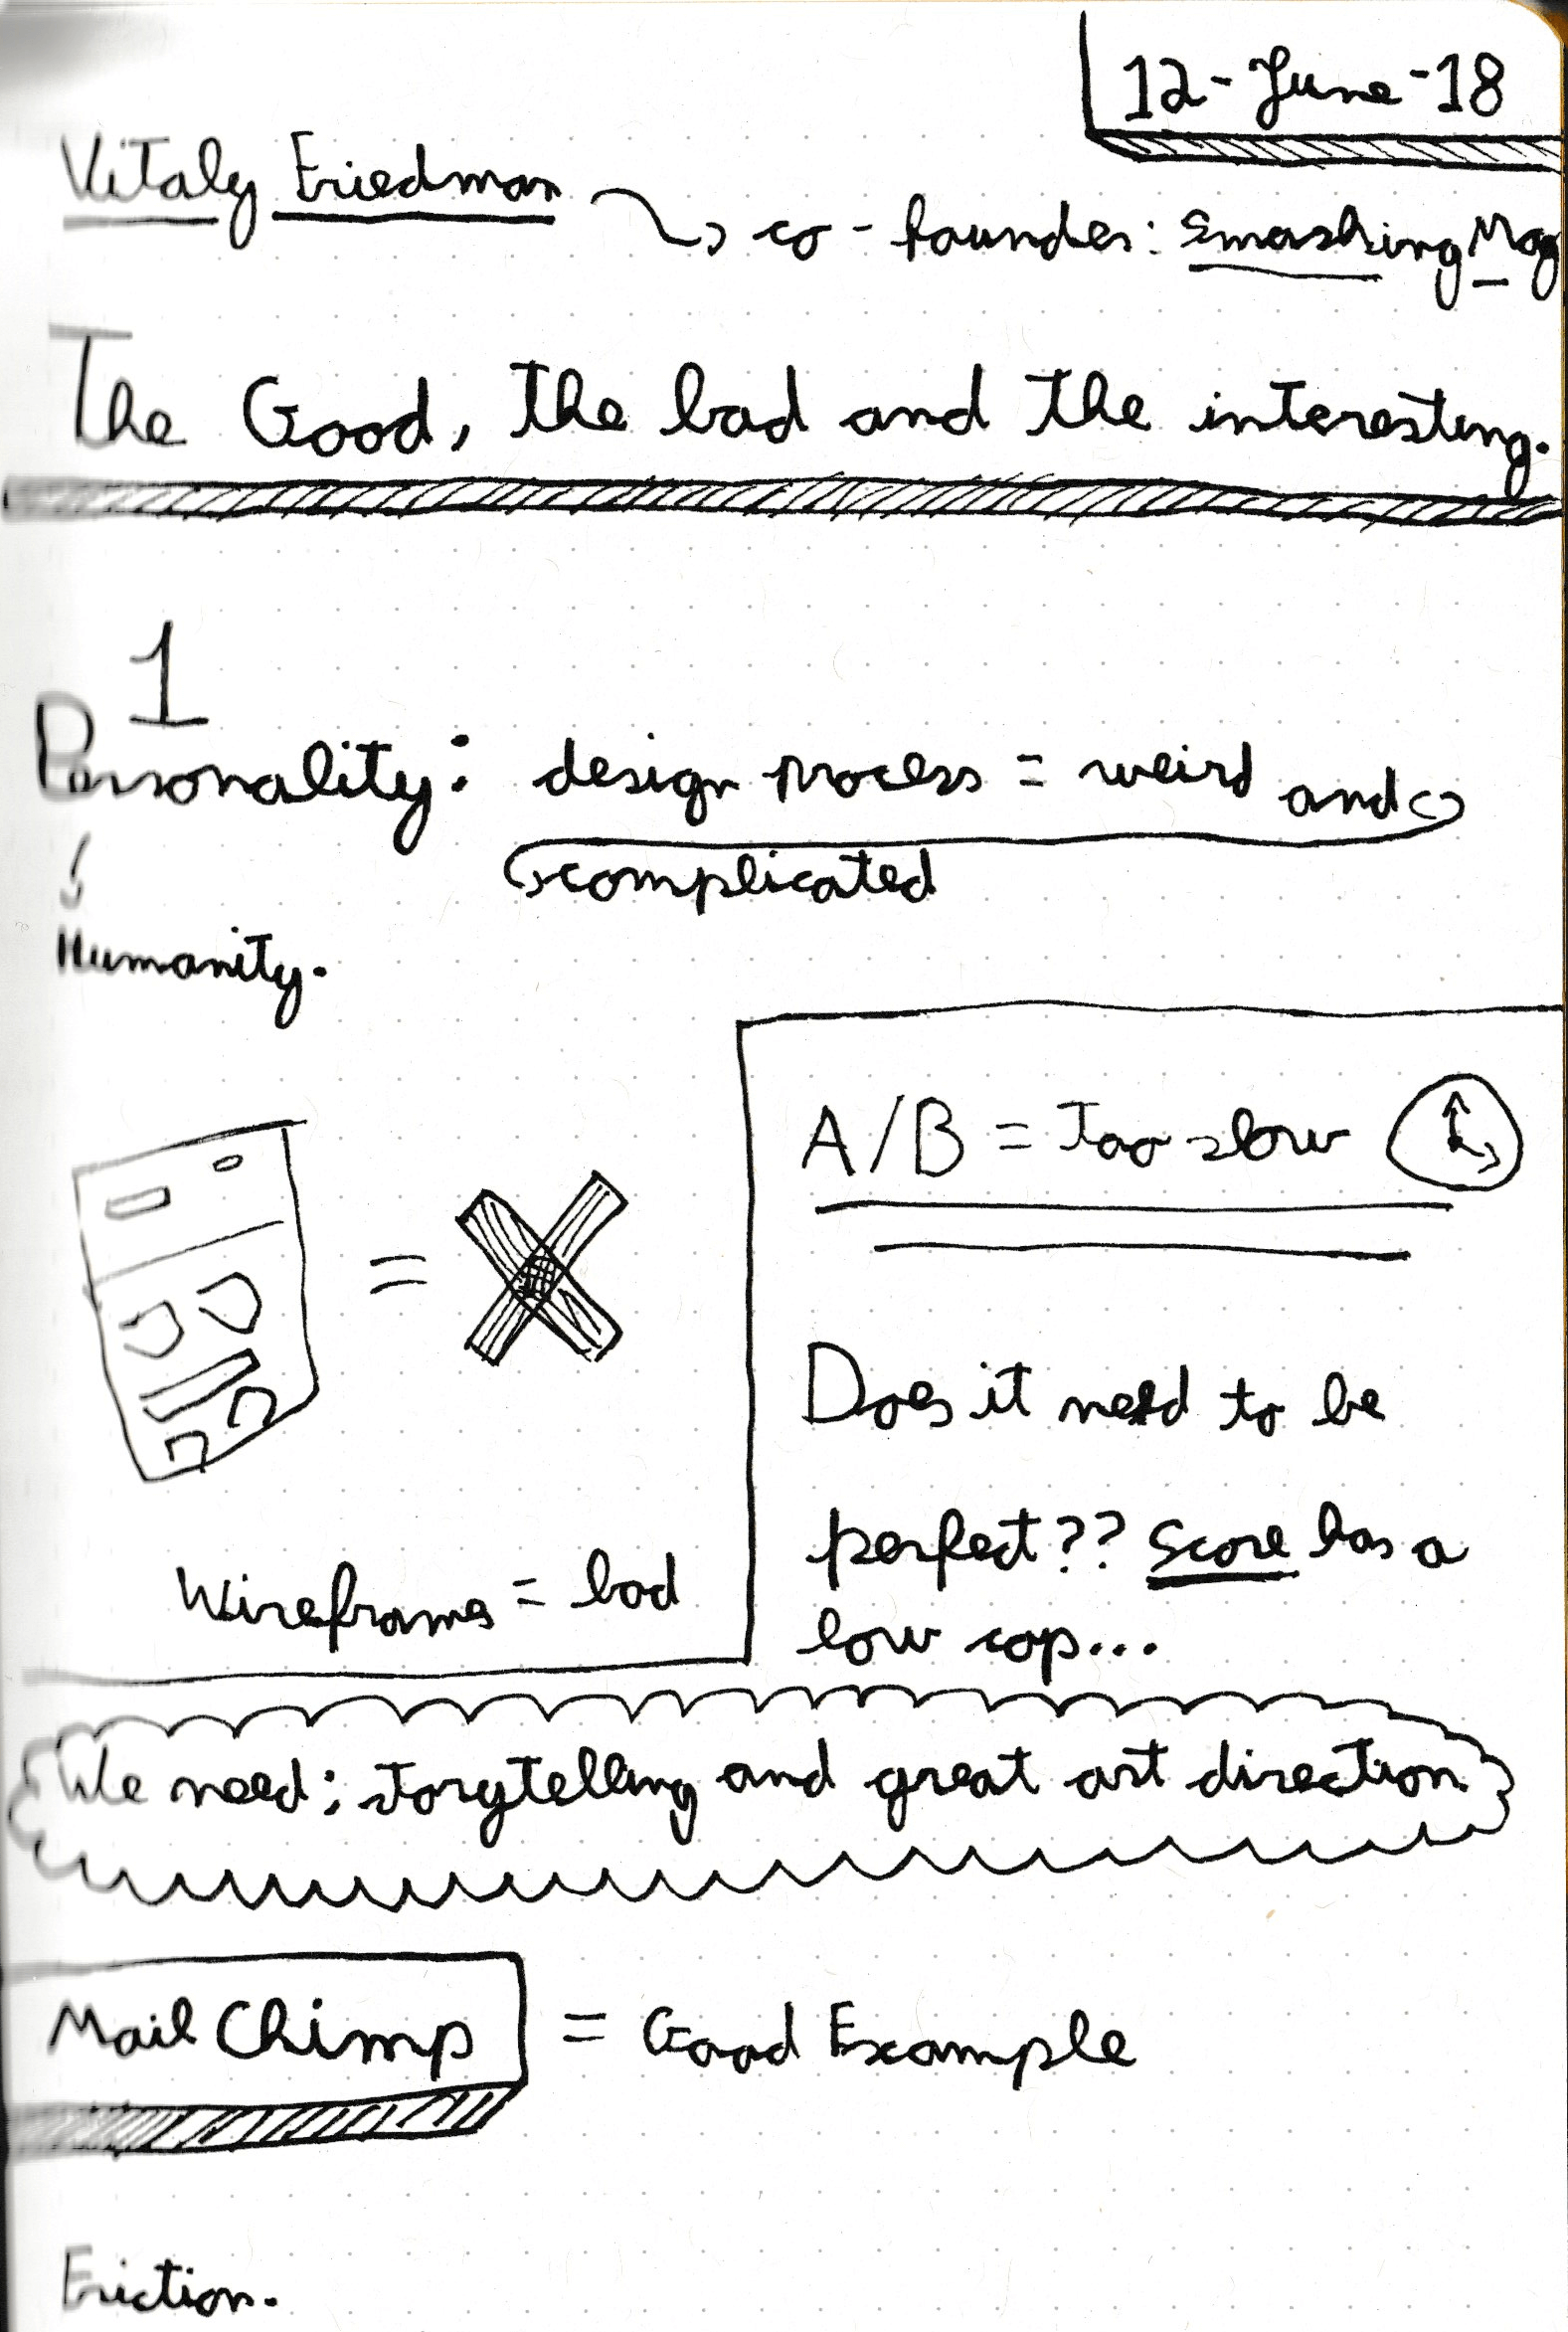 12-June-18
Vitaly Friedman
co-founder: Smashing Mag
The Good, the bad and the interesting.
1
Personality: design process = weird and
complicated
Humanity.
A/B = Too slow
Does it need to be
perfect?? Score has a
low cap...
=
Wireframes = bad
We need; storytelling and great art direction
MailChimp = Good Example
Friction.